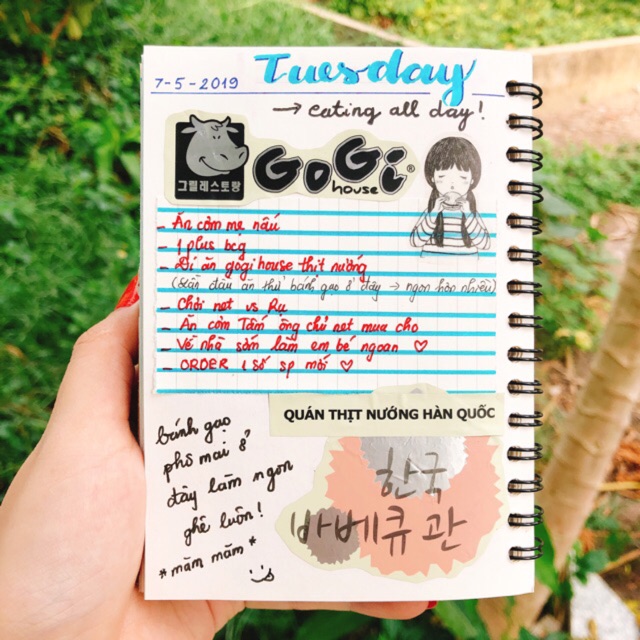 Tuesday
7-5-2019
→ eating all day!
그릴레스토랑
GoGi®
house
- Ăn cơm mẹ nấu
- 1 plus bcg
- Đi ăn gogi house thịt nướng
(lần đầu ăn thử bánh gạo ở đây → ngon hơn nhiều)
- Chơi net vs Ru
- Ăn cơm Tấm ông chủ net mua cho
- Về nhà sớm làm em bé ngoan ♡
- ORDER 1 số sp mới ♡
QUÁN THỊT NƯỚNG HÀN QUỐC
한국
바베큐관
bánh gạo
phô mai ở
đây làm ngon
ghê luôn!
*măm măm*